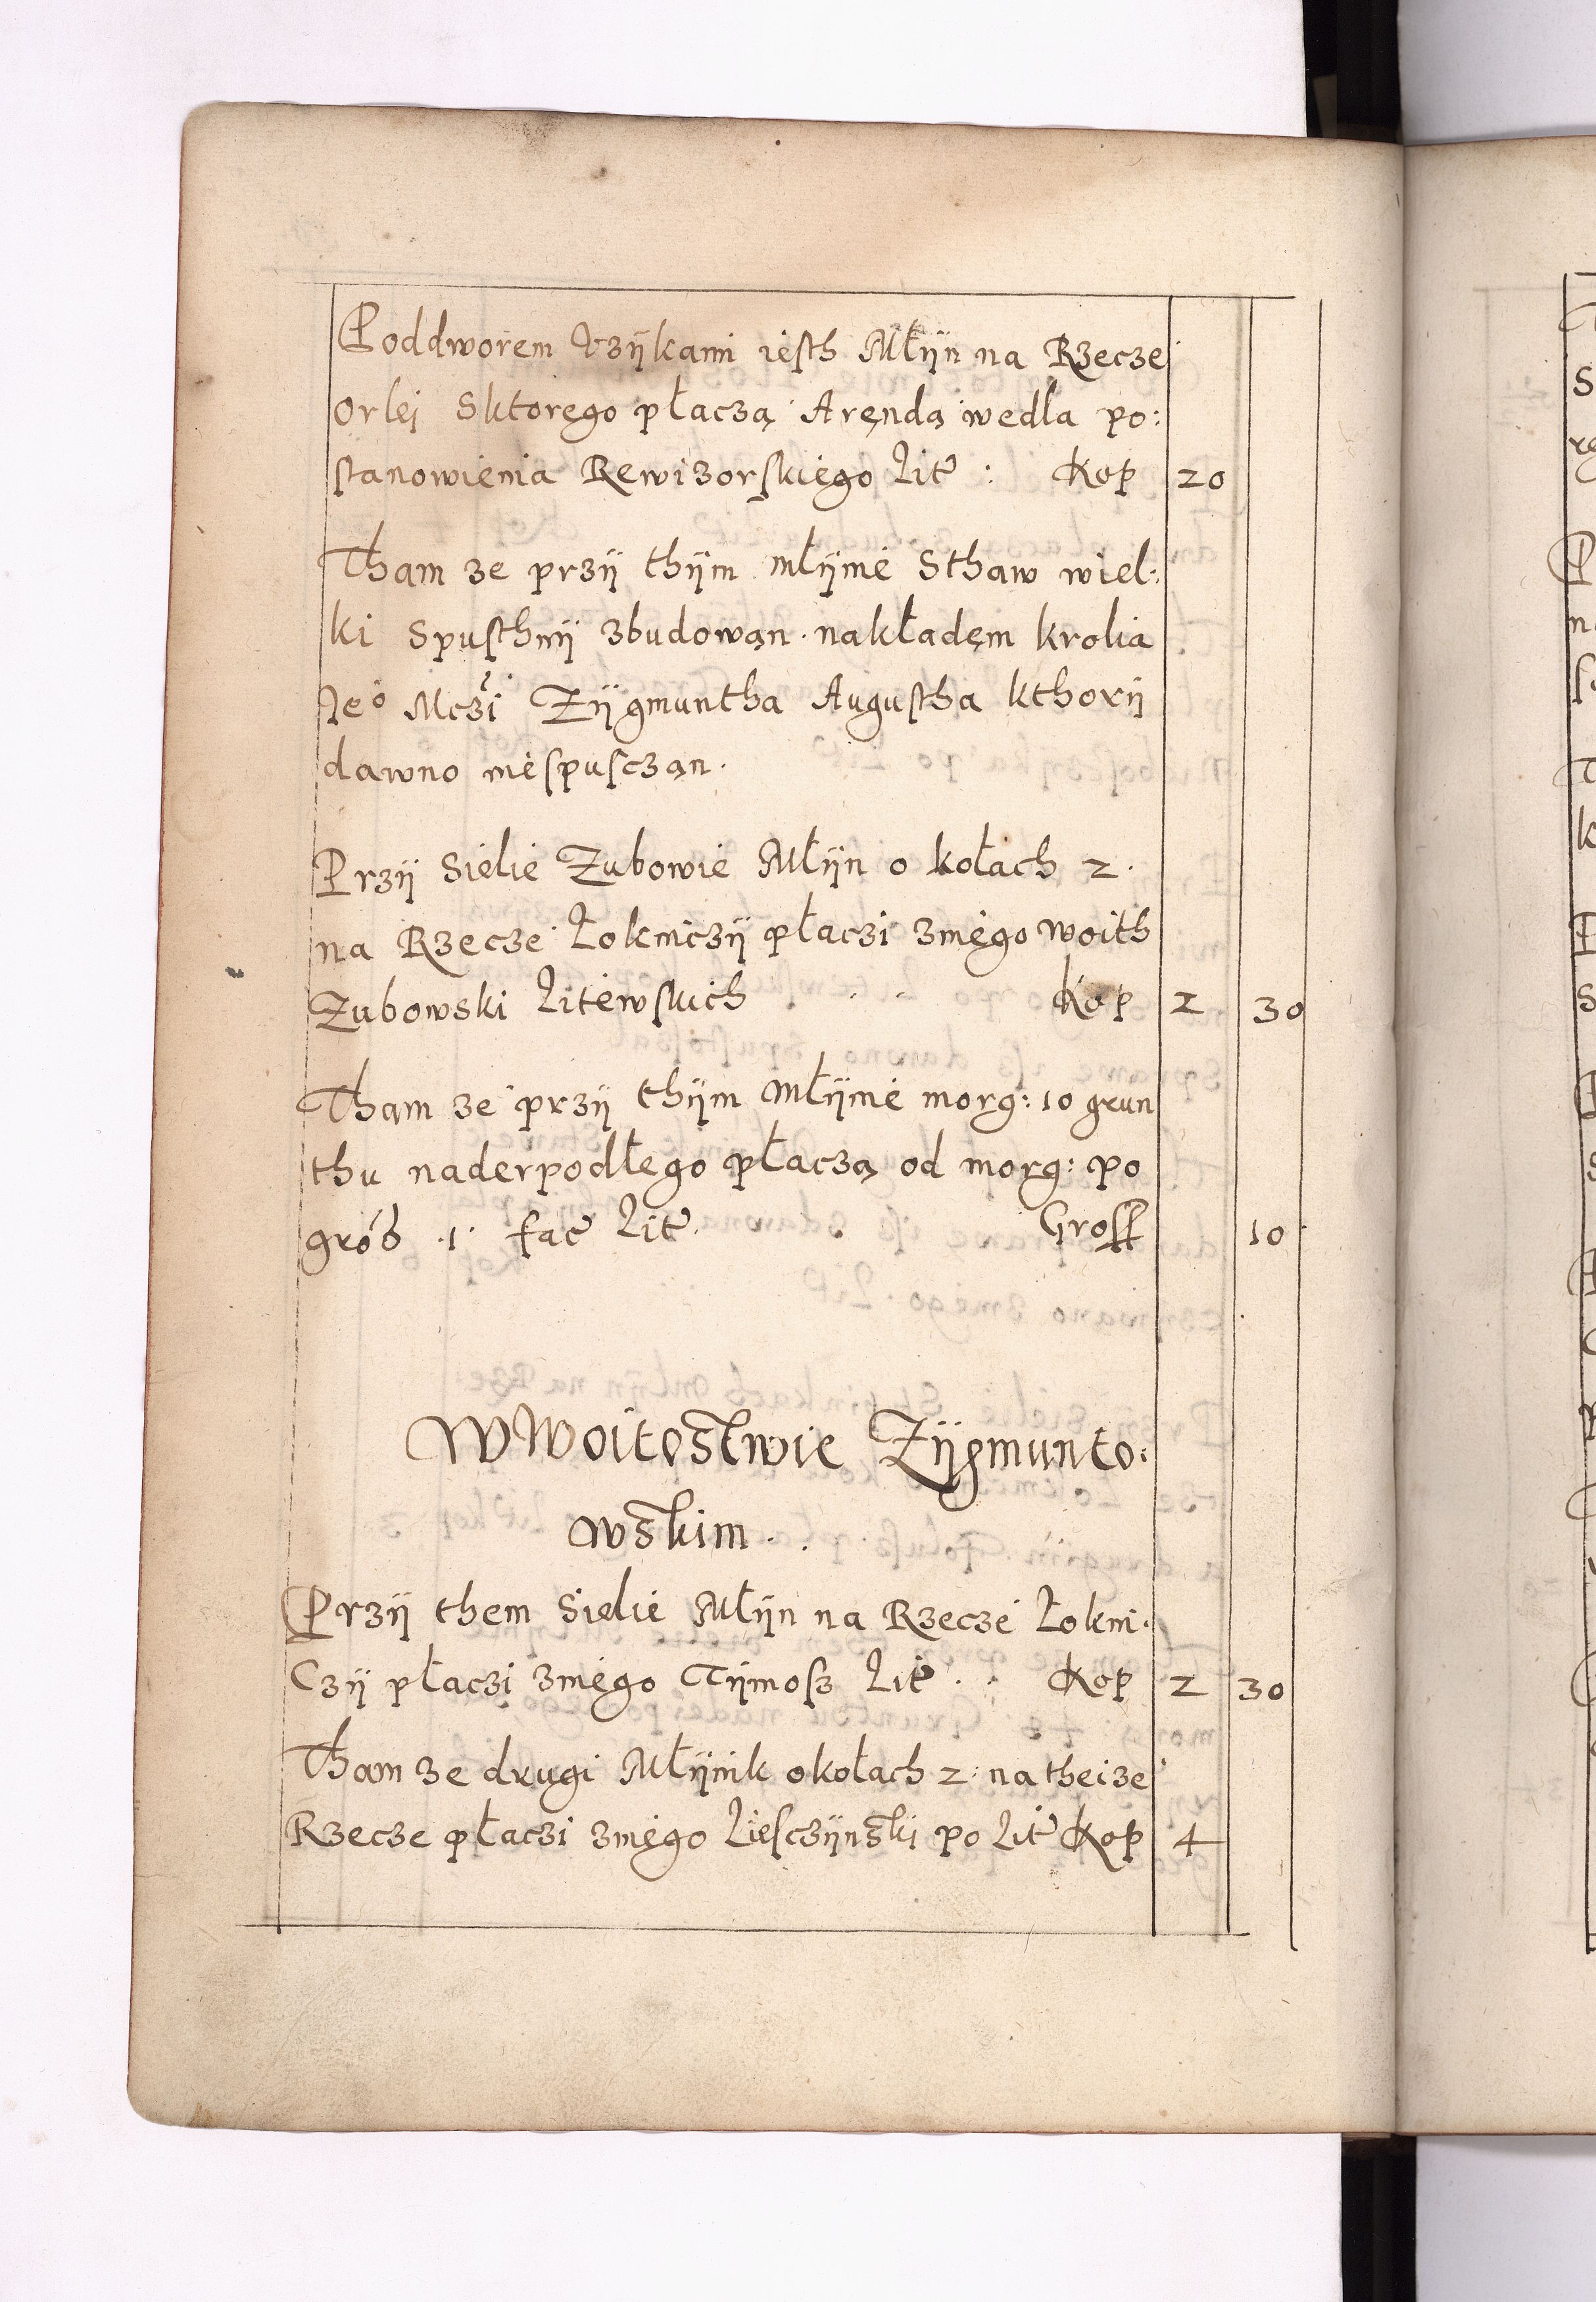 Poddworem Krzÿkami iesth Młÿn na Rzecze
Orlei Sktorego płaczą Arendą wedla po:
stanowienia Rewizorskiego Lit: Kop 20
Tham ze przÿ thÿm młÿnie Sthaw wiel:
ki Spusthnÿ zbudowan nakładem krolia
Je⁰ Mczi Zÿgmuntha Augustha kthorÿ
dawno niespusczan.
Przÿ Sielie Zubowie Młÿn o kołach 2.
na Rzecze Łokniczÿ płaczi zniego woith
Zubowski Litewskich . . Kop 2 30
Tham ze przÿ thÿm Młÿnie morg: 10 grun
thu naderpodłego płaczą od morg: po
gros .1. fac Lit. Gross 10
WWoitostwie Zÿgmunto:
wskim . .
Przÿ them Sielie Młÿn na Rzecze Łokni:
Czÿ płaczi zniego Tÿmosz Lit . . Kop 2 30
Tham ze drugi Młÿnik okołach 2: na theize
Rzecze płaczi zniego Liesczÿnski po Lit Kop 4